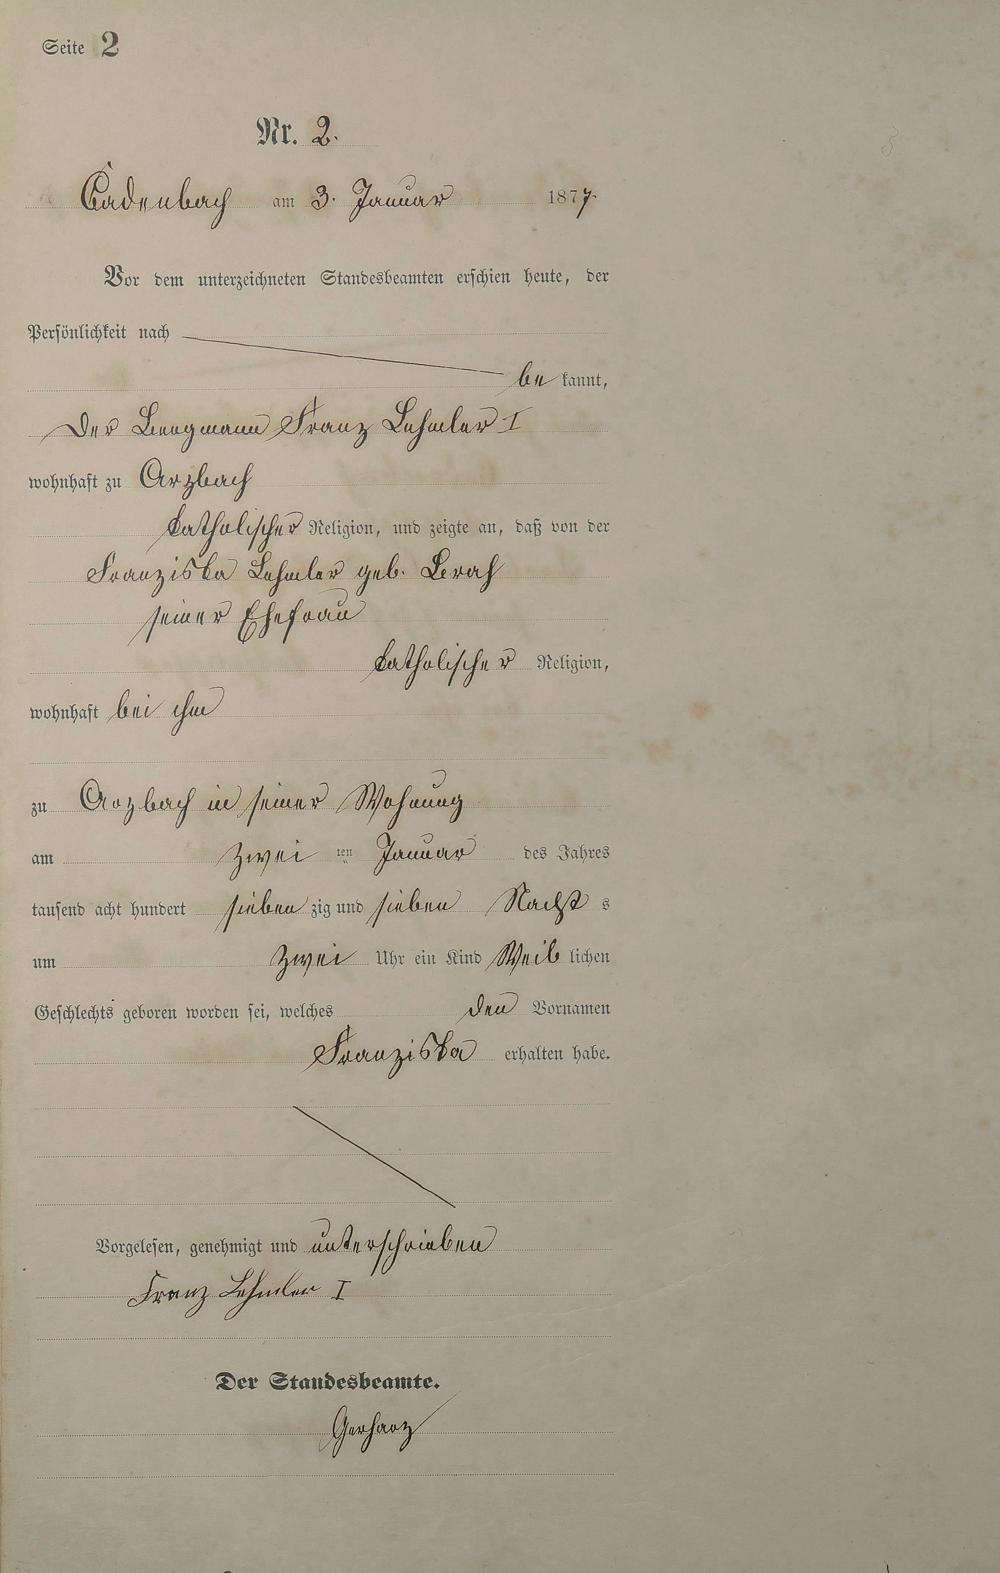 Seite 2
Nr. 2.
Cadenbach am 3. Januar 1877.
Vor dem unterzeichneten Standesbeamten erschien heute, der
Persönlichkeit nach
be kannt,
Der Bergmann Franz Lehmler I
wohnhaft zu Arzbach
katholischer Religion, und zeigte an, daß von der
Franziska Lehmler geb.
seiner Ehefrau
katholischer Religion,
wohnhaft bei ihm
zu Arzbach in seiner Wohnung
am zwei ten Januar des Jahres
tausend acht hundert sieben zig und sieben Nacht s
um zwei Uhr ein Kind Weib lichen
Geschlechts geboren worden sei, welches den Vornamen
Franziska erhalten habe.
Vorgelesen, genehmigt und unterschrieben
Franz Lehmler I
Der Standesbeamte.
Gerharz